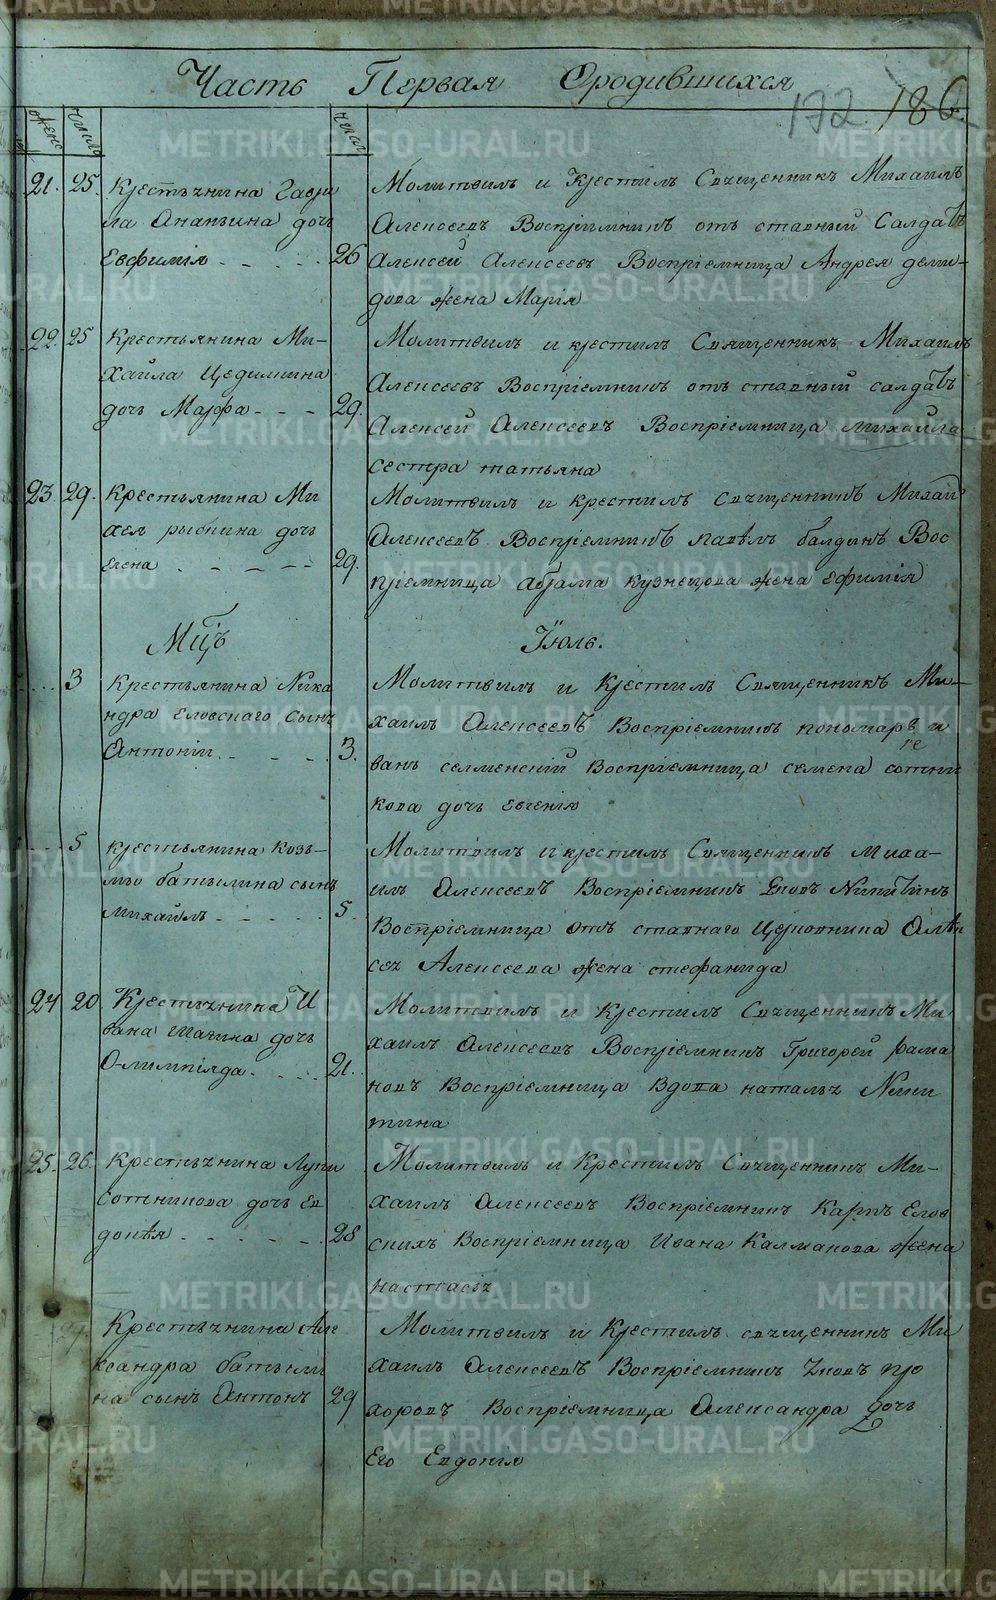 Часть Первая Ородившихся
172 186.
женс числ числ
21. 25. Крестьянина Гаври
ла Ананьина дочь
Евфимія 26
Молитвилъ и Крестилъ Священникъ Михаилъ
Алексеевъ Воспріимникъ отъ ставный Салдатъ
Алексей Алексеевъ Воспріемница Андрея деми-
дова жена Марія
22. 25 Крестьянина Ми-
хайла Цедилкина
дочь Марфа 29.
Молитвилъ и крестилъ Священникъ Михаилъ
Алексеевъ Воспріемникъ отъ ставный салдатъ
Алексей Алексеевъ Воспріемница михайла
сестра татьяна
23. 29. Крестьянина Ми
хея рыбкина дочь
елена 29.
Молитвилъ и крестилъ Священникъ Михаи
Алексеевъ Воспріемникъ павелъ балдинъ Вос
пріемница абрама кузнецова жена ефимія
Мцъ Іюль.
3 Крестьянина Ника
ндра еловскаго сынъ
Антоніи 3.
Молитвилъ и Крестилъ Священникъ Ми-
хаилъ Алексеевъ Воспріемникъ пономарь и
ванъ селменскій Воспріемница семена сотни
кова дочь евгенія
5 крестьянина козь-
мы батылина сынъ
михайлъ 5.
Молитвилъ и крестилъ Священникъ миха-
илъ Алексеевъ Воспріемникъ Никитинъ
Воспріемница отъ ставнаго Церковника Алѣк
сея Алексеева жена стефанида
24 20 Крестьянина И
вана шагина дочь
Олимпіяда 21.
Молитвилъ и Крестилъ Священникъ Ми
хаилъ Алексеевъ Воспріемникъ Григорей рама
новъ Воспріемница Вдова наталья Ники
тина
25. 26. Крестьянина Лупи
Сотникова дочь Ев
докѣя 28
Молитвилъ и Крестилъ Священникъ Ми-
хаилъ Алексеевъ Воспріемникъ Карпъ Елов
скихъ Воспріемница Ивана Калмакова жена
настасія
Крестьянина Але
ксандра батыли
на сынъ Антонъ 29
Молитвилъ и Крестилъ священникъ Ми
хаилъ Алексеевъ Воспріемникъ про
хоровъ Воспріемница Александра дочь
Его Евдокія
METRIKI.GASO-URAL.RU